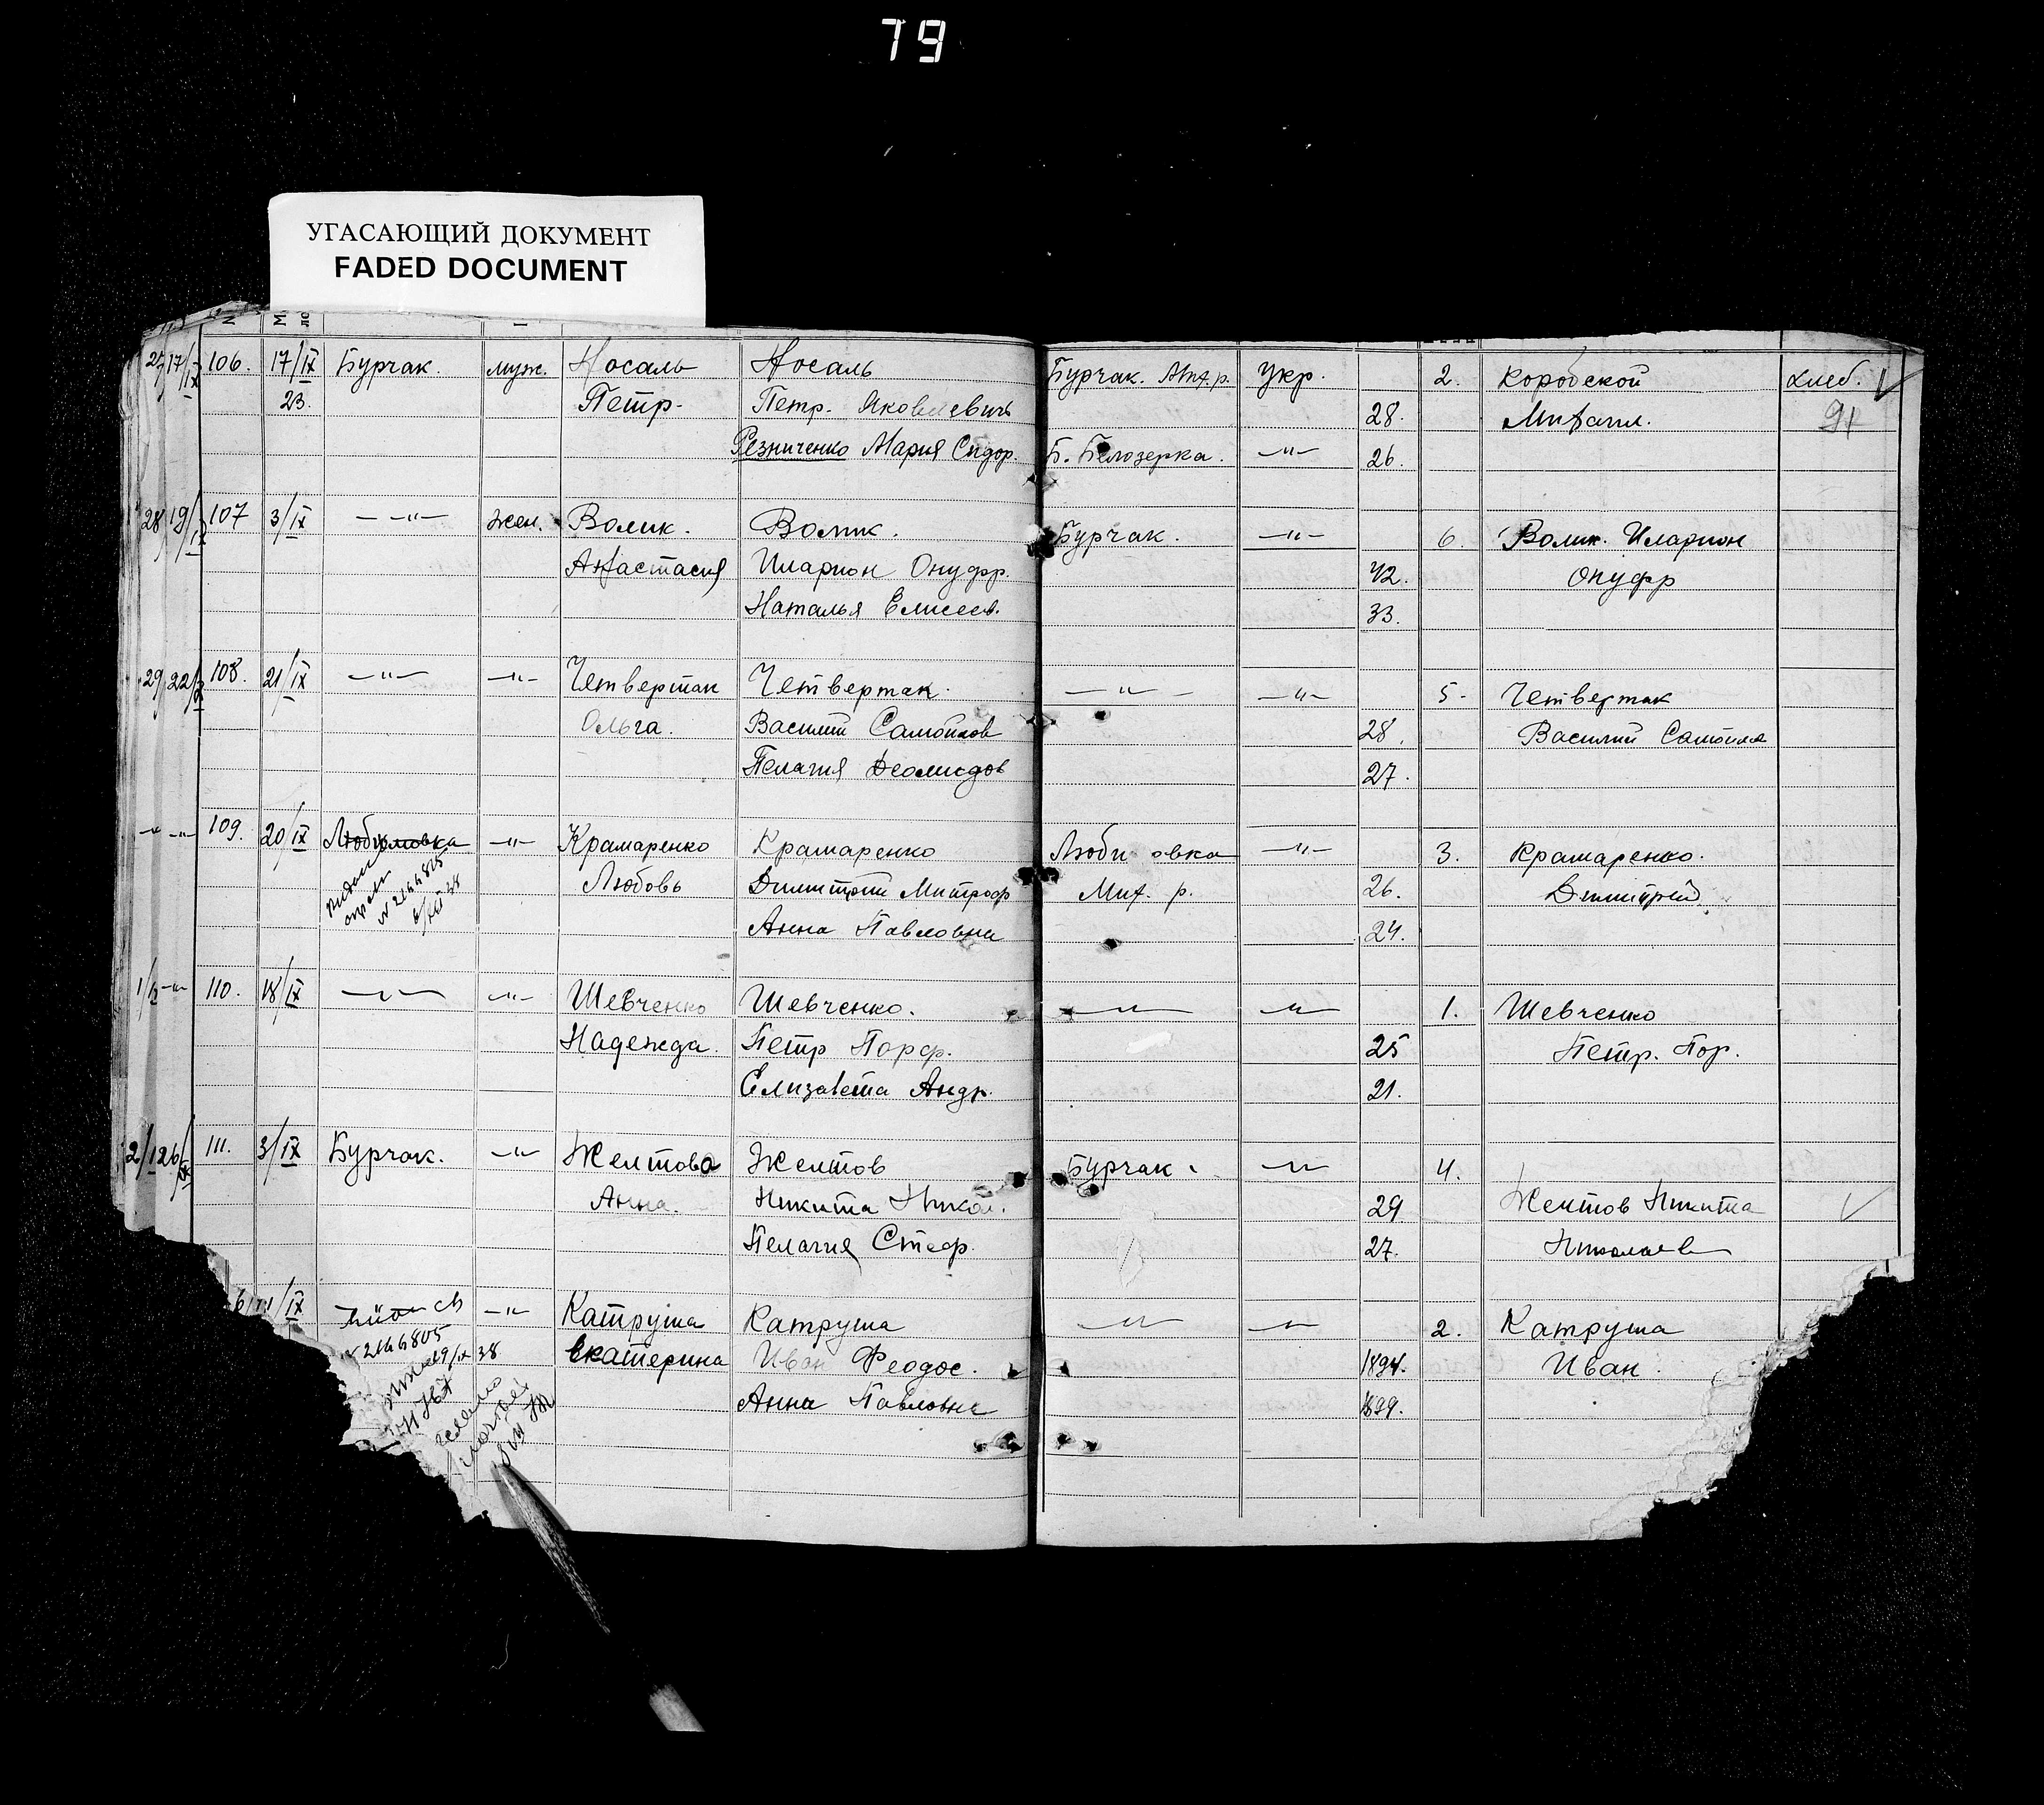 79
УГАСАЮЩИЙ ДОКУМЕНТ
FADED DOCUMENT
17/IX 106. 17/IX Бурчак. муж. Носаль Носаль Бурчак. Мих. р. Укр. 2. Коробской хлеб.
23. Петр. Петр. Яковлевичъ 28. Михаил. 91
Резниченко Мария Сидор. Б. Белозерка. —"— 26.
28 19/IX 107 3/IX — —"— жен. Волик. Волик. Бурчак. —"— 6. Волик. Иларион
Анастасия Иларион Онуфр. 42. Онуфр
Наталья Елисеев. 33.
29 22/IX 108. 21/IX —"— —"— Четвертак Четвертак. —"— —"— 5. Четвертак
Ольга. Василий Самойлов 28. Василий Самойлов
Пелагия Деомидов 27.
—"— —"— 109. 20/IX Любимовка —"— Крамаренко Крамаренко Люби овка —"— 3. Крамаренко.
Любовь Димитрий Митроф Мих. р. 26. Димитрий
№ 2144805
Анна Павловна 24.
—"— 110. 18/IX —"— —"— Шевченко Шевченко. —"— —"— 1. Шевченко
Надежда. Петр Порф. 25 Петр. Пор.
Елизавета Андр. 21.
26/IX 111. 3/IX Бурчак. —"— Желтова Желтов Бурчак. —"— 4.
Анна. Никита Никол. 29. Желтов Никита
Пелагия Стеф. 27. Николаев
/IX —"— Катруша Катруша —"— —"— 2. Катруша
№ 2144805
38 Екатерина Иван Феодос. 1894. Иван.
Анна Павловна 1899.